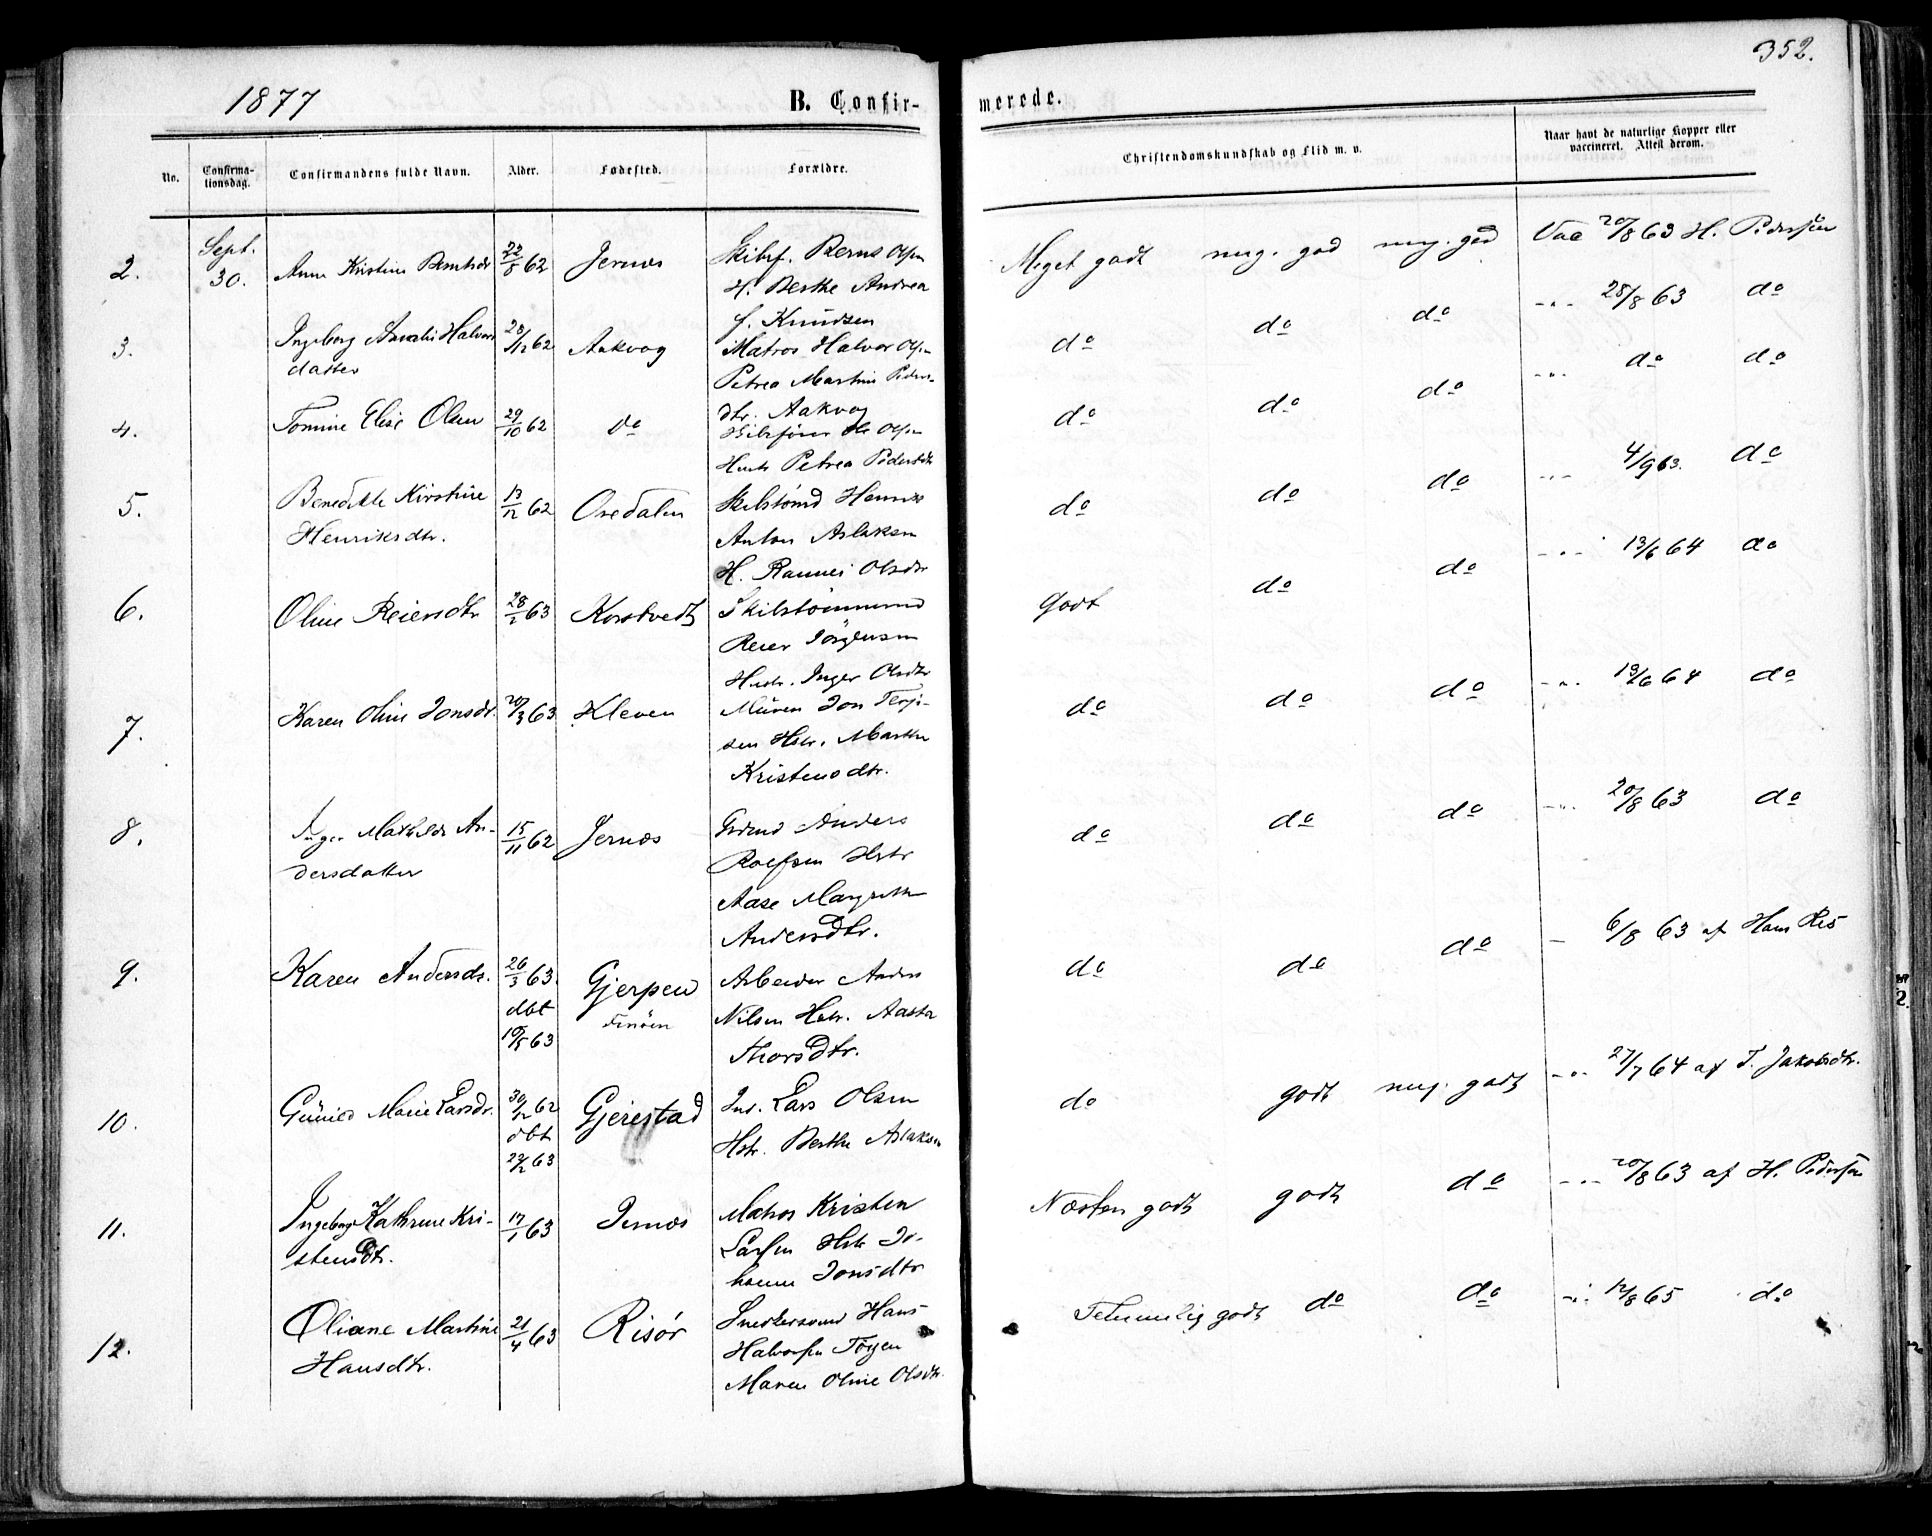 352.
1877
B. Confir-
merede.
No.
Confirma-
tionsdag.
Confirmandens fulde Navn.
Alder.
Fødested.
Forældre.
Christendomskundskab og Flid m. v.
Naar havt de naturlige Kopper eller
vaccineret. Attest derom.
2.
Sept.
30.
Anne Kristine Berntsdr
22/8 62
Jernæs
Skibsf. Bernt Olsen
H. Berthe Andrea
f. Knudsen
Meget godt meg. god meg. god Vac 20/8 63 H. Pedersen
3.
Ingeborg Amalie Halvors
datter
28/12 62
Aakvag
Matros Halvor Olsen
Petrea Martine Peders-
dtr. Aakvag
do do do 28/8 63 do
4.
Tomine Elise Olsen
29/10 62
do
Skibsfører Ole Olsen
Hustr Petrea Pedersdtr
do do do do do
5.
Benedikte Kirstine
Henriksdtr.
13/12 62
Oredalen
Skibstømd Henrik
Anton Aslaksen
H. Rannei Olsdtr
do do do 4/9 63. do
6.
Oline Reiersdtr
28/2 63
Korstvedt
Skibstømmermd
Reier Jörgensen
Hustr. Inger Olsdtr
Godt do do 13/6 64 do
7.
Karen Oline Jonsdr.
20/3 63
Kleven
Müren Jon Terji-
sen Hstr. Marthe
Kristensdtr.
do do do 13/6 64 do
8.
Inger Mathilde An-
dersdatter
15/11 62
Jernæs
Grdmd Anders
Roefsen Hstr
Aase Margrethe
Andersdtr.
do do do 20/8 63 do
9.
Karen Andersdr.
26/3 63.
dbt
10/5 63
Gjerpen
Arbeider Anders
Nilsen Hstr. Aasta
Thorsdtr.
do do do 6/8 63 af Hans
10.
Gunild Marie Larsdr.
30/12 62
dbt
22/2 63
Gjerestad
Ind. Lars Olsen
Hstr. Berthe Aslaksen
do godt meg. godt 27/7 64 af T. Jakobsdtr.
11.
Ingeborg Kathrine Kri-
stensdtr.
17/1 63
Jernæs
Matros Kristen
Larsen Hstr Jo-
hanne Jonsdtr
Næsten godt godt do 20/8 63 af H. Pedersen
12.
Oliane Martine
Hansdtr.
21/4 63
Risør
Snedkersvend Hans
Halvorsen
Maren Oline Olsdtr.
Temmelig godt do do 12/8 65 do